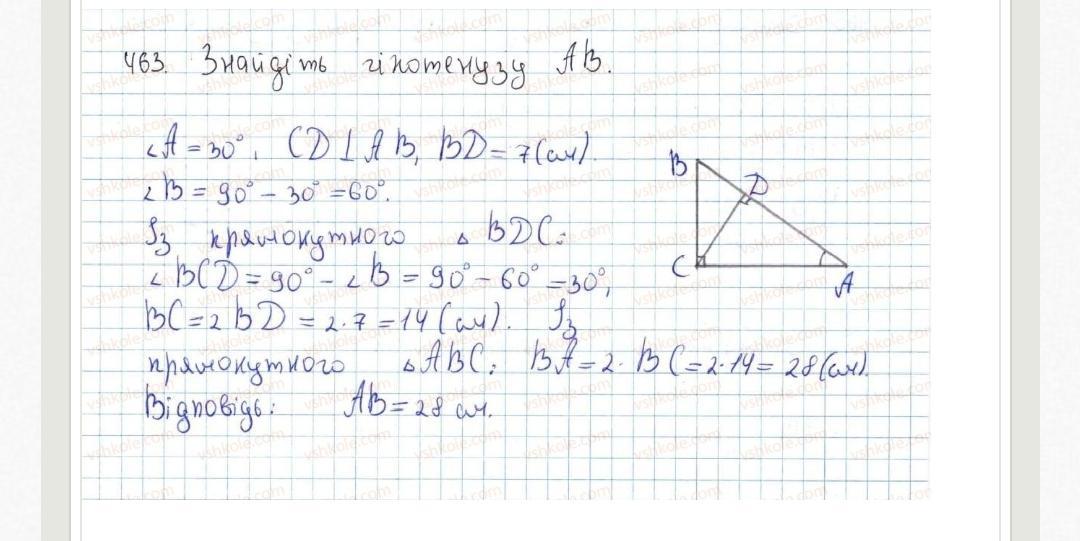 463. Знайдіть гіпотенузу AB.
∠A = 30°, CD ⊥ AB, BD = 7 (см).
∠B = 90° - 30° = 60°.
Із прямокутного △ BDC:
∠BCD = 90° - ∠B = 90° - 60° = 30°,
BC = 2 BD = 2·7 = 14 (см). Із
прямокутного △ABC: BA = 2· BC = 2·14 = 28 (см).
Відповідь: AB = 28 см.
B
D
C
A